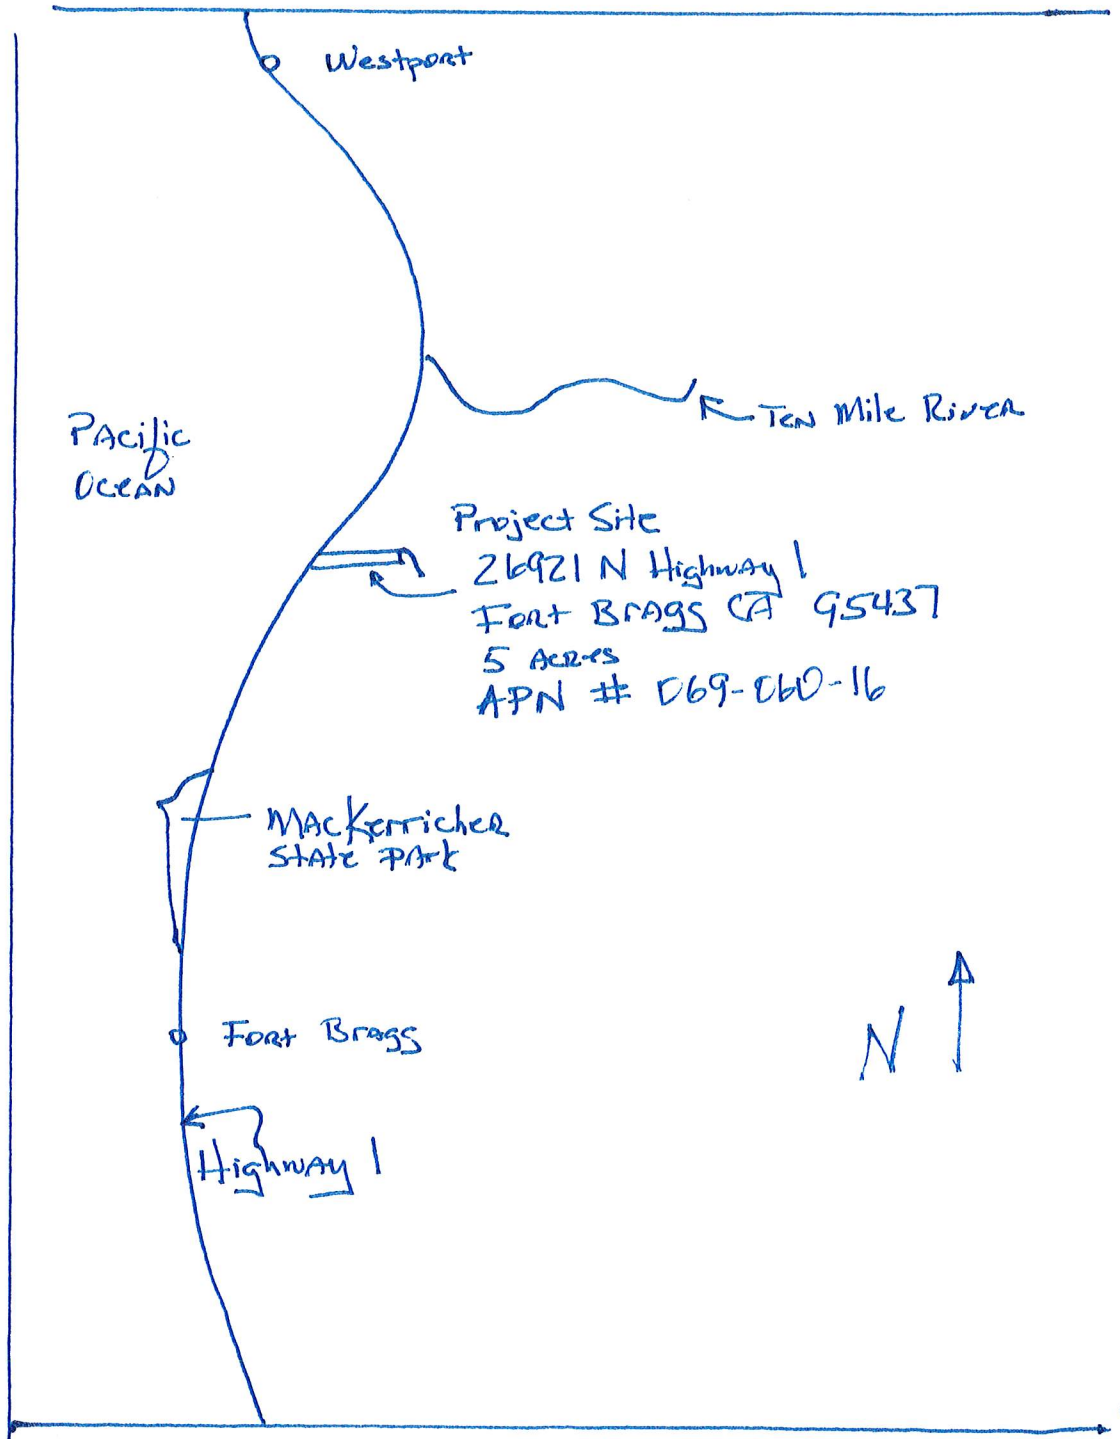 Westport
Ten Mile River
Pacific
Ocean
Project Site
26921 N Highway 1
Fort Bragg CA 95437
5 Acres
APN # 069-060-16
MacKerricher
State Park
Fort Bragg
N
Highway 1